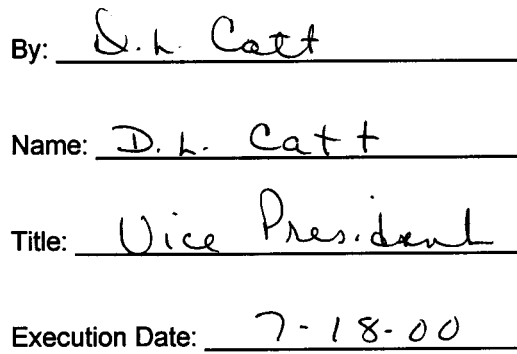 By: D. L. Catt
Name: D. L. Catt
Title: Vice President
Execution Date: 7-18-00